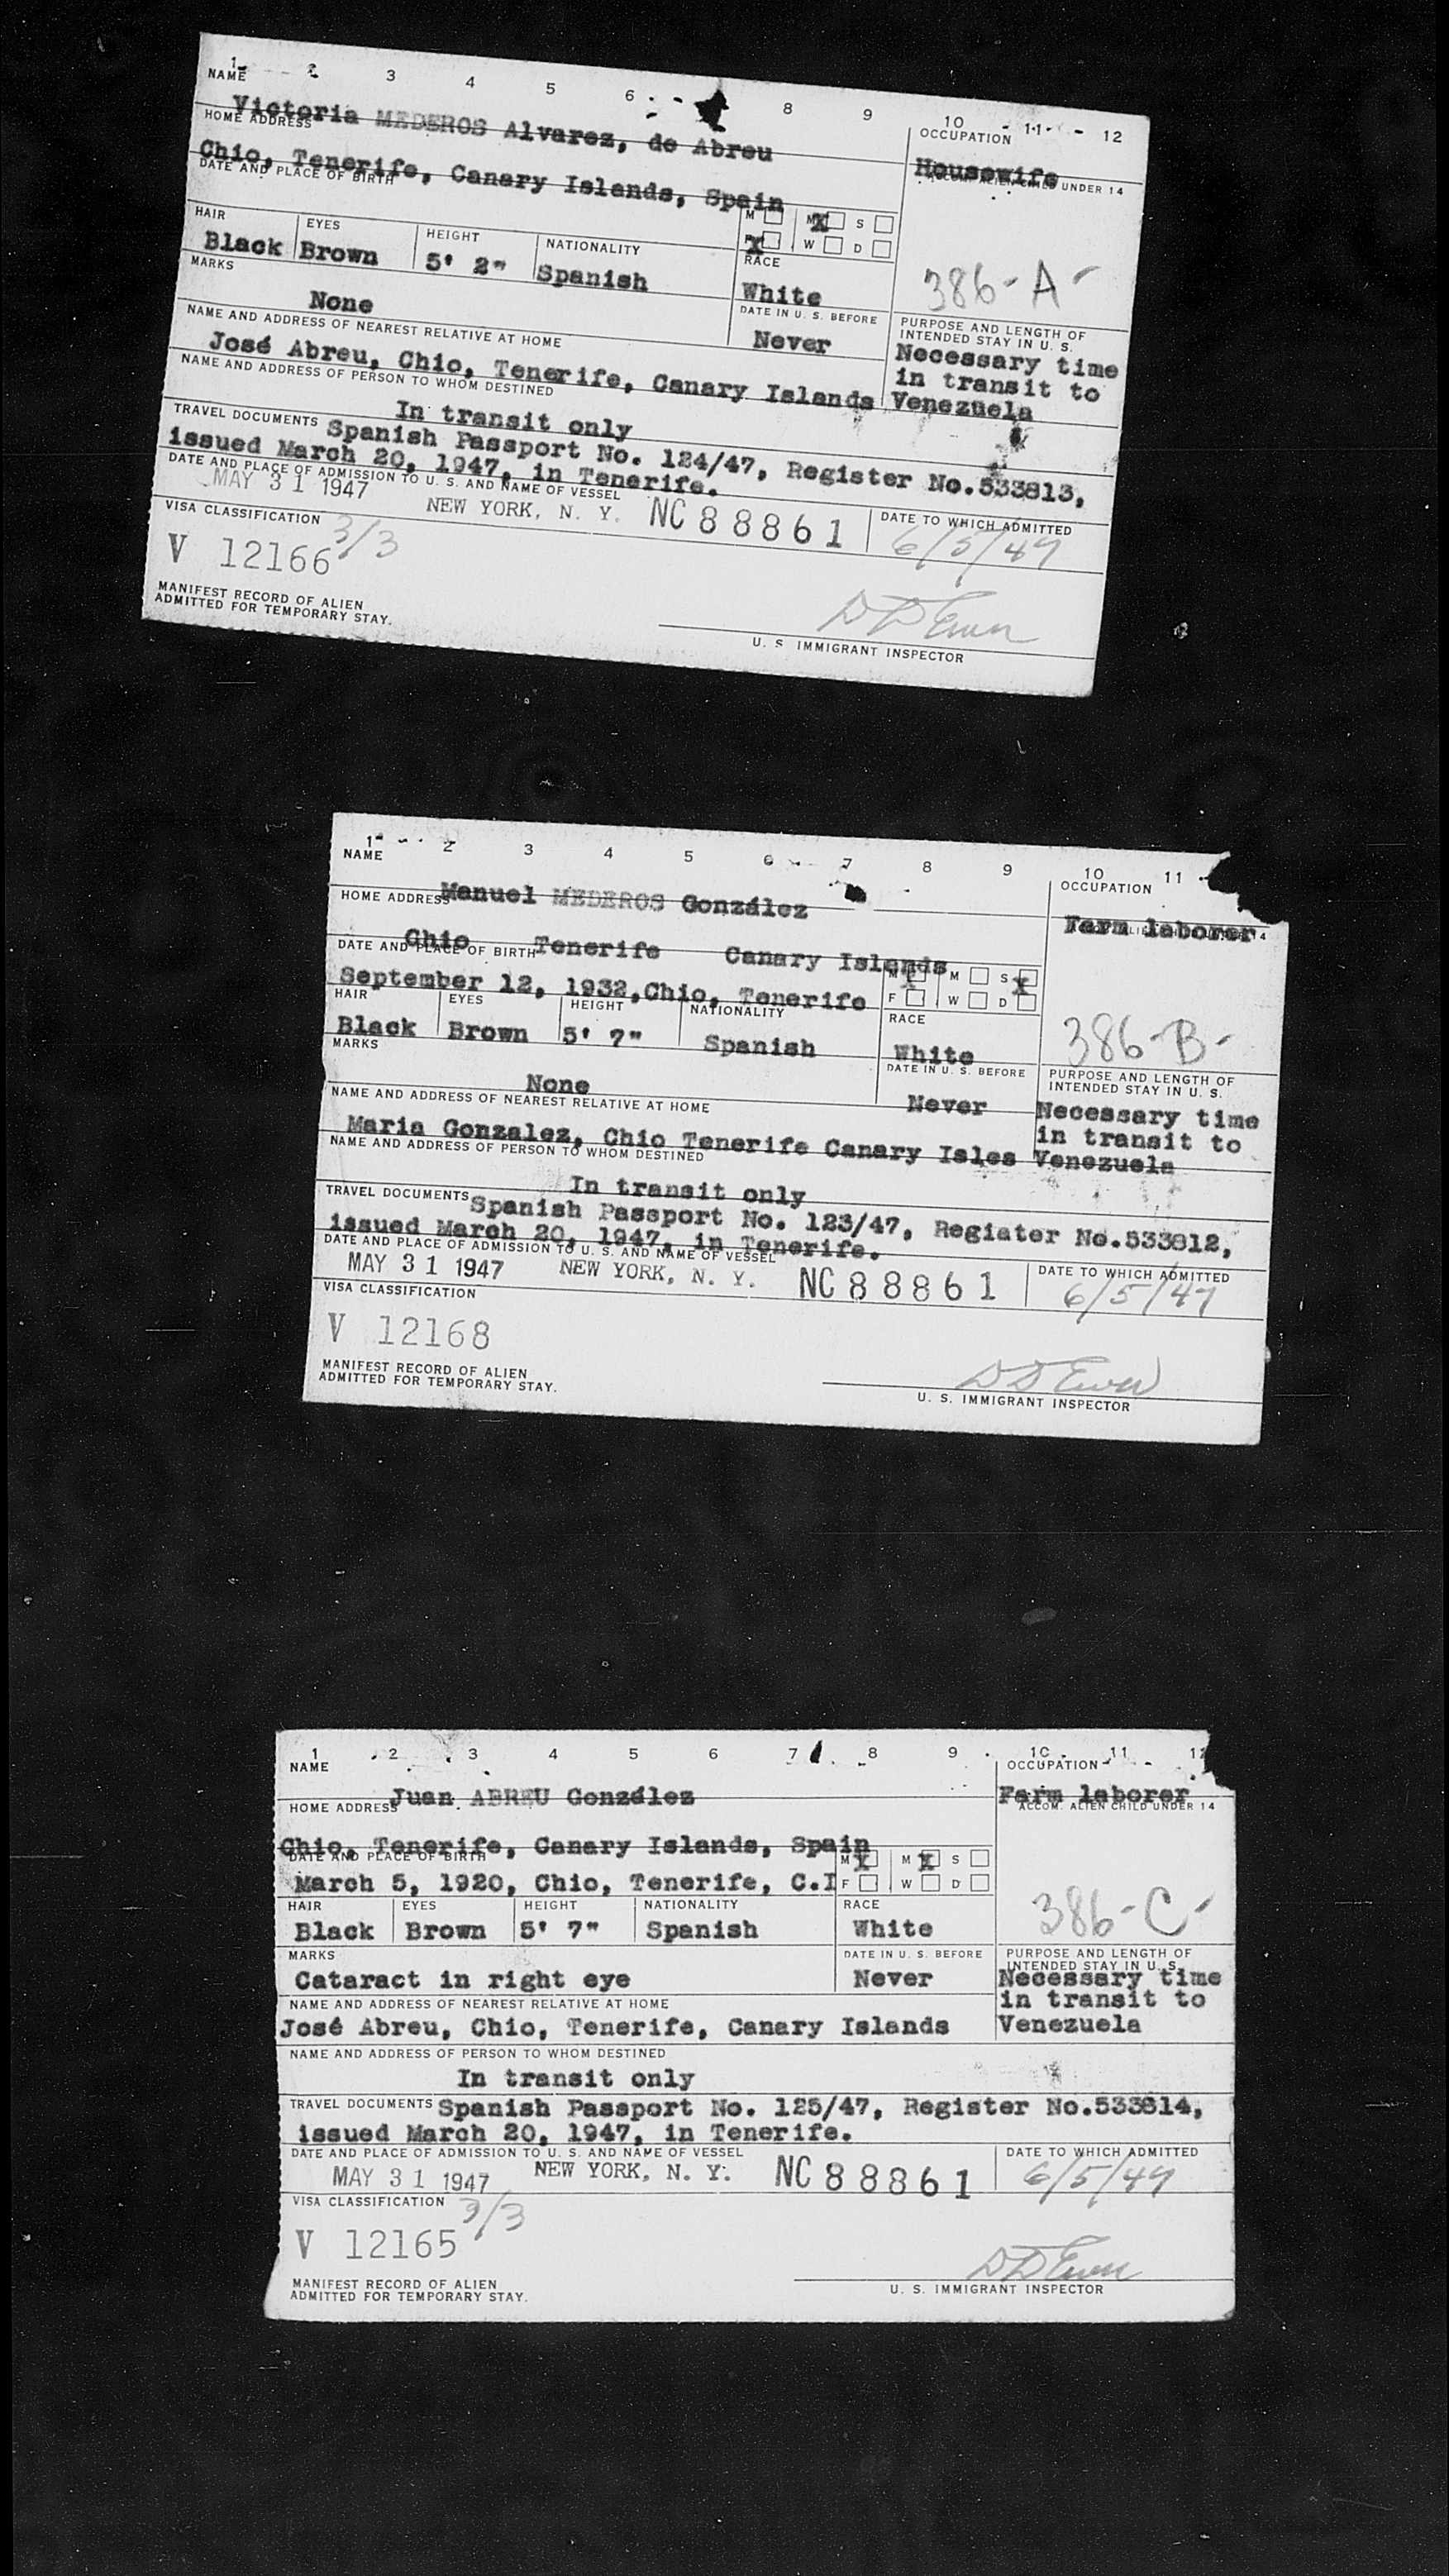 1 2 3 4 5 6 8 9 10 11 12
NAME
Victoria MEDEROS Alvarez, de Abreu
OCCUPATION
Housewife
HOME ADDRESS
Chio, Tenerife, Canary Islands, Spain
UNDER 14
DATE AND PLACE OF BIRTH
M M X S
F X W D
HAIR EYES HEIGHT NATIONALITY RACE
Black Brown 5' 2" Spanish White
386-A-
MARKS
None
DATE IN U. S. BEFORE
Never
PURPOSE AND LENGTH OF
INTENDED STAY IN U. S.
Necessary time
in transit to
Venezuela
NAME AND ADDRESS OF NEAREST RELATIVE AT HOME
José Abreu, Chio, Tenerife, Canary Islands
NAME AND ADDRESS OF PERSON TO WHOM DESTINED
In transit only
TRAVEL DOCUMENTS Spanish Passport No. 124/47, Register No.533813,
issued March 20, 1947, in Tenerife.
DATE AND PLACE OF ADMISSION TO U. S. AND NAME OF VESSEL
MAY 31 1947 NEW YORK, N. Y. NC 88861
DATE TO WHICH ADMITTED
6/5/47
VISA CLASSIFICATION
3/3
V 12166
MANIFEST RECORD OF ALIEN
ADMITTED FOR TEMPORARY STAY.
U. S. IMMIGRANT INSPECTOR
1 2 3 4 5 6 7 8 9 10 11
NAME
Manuel MEDEROS González
OCCUPATION
Farm laborer
HOME ADDRESS
Chio Tenerife Canary Islands
DATE AND PLACE OF BIRTH
September 12, 1932, Chio, Tenerife
M X M S X
F W D
HAIR EYES HEIGHT NATIONALITY RACE
Black Brown 5' 7" Spanish White
386-B-
MARKS
None
DATE IN U. S. BEFORE
Never
PURPOSE AND LENGTH OF
INTENDED STAY IN U. S.
Necessary time
in transit to
Venezuela
NAME AND ADDRESS OF NEAREST RELATIVE AT HOME
Maria Gonzalez, Chio Tenerife Canary Isles
NAME AND ADDRESS OF PERSON TO WHOM DESTINED
In transit only
TRAVEL DOCUMENTS Spanish Passport No. 123/47, Register No.533812,
issued March 20, 1947, in Tenerife.
DATE AND PLACE OF ADMISSION TO U. S. AND NAME OF VESSEL
MAY 31 1947 NEW YORK, N. Y. NC 88861
DATE TO WHICH ADMITTED
6/5/47
VISA CLASSIFICATION
V 12168
MANIFEST RECORD OF ALIEN
ADMITTED FOR TEMPORARY STAY.
U. S. IMMIGRANT INSPECTOR
1 2 3 4 5 6 7 8 9 10 11 12
NAME
Juan ABREU González
OCCUPATION
Farm laborer
HOME ADDRESS
ACCOM. ALIEN CHILD UNDER 14
Chio, Tenerife, Canary Islands, Spain
DATE AND PLACE OF BIRTH
March 5, 1920, Chio, Tenerife, C.I
M X M X S
F W D
HAIR EYES HEIGHT NATIONALITY RACE
Black Brown 5' 7" Spanish White
386-C-
MARKS
Cataract in right eye
DATE IN U. S. BEFORE
Never
PURPOSE AND LENGTH OF
INTENDED STAY IN U. S.
Necessary time
in transit to
Venezuela
NAME AND ADDRESS OF NEAREST RELATIVE AT HOME
José Abreu, Chio, Tenerife, Canary Islands
NAME AND ADDRESS OF PERSON TO WHOM DESTINED
In transit only
TRAVEL DOCUMENTS Spanish Passport No. 125/47, Register No.533814,
issued March 20, 1947, in Tenerife.
DATE AND PLACE OF ADMISSION TO U. S. AND NAME OF VESSEL
MAY 31 1947 NEW YORK, N. Y. NC 88861
DATE TO WHICH ADMITTED
6/5/47
VISA CLASSIFICATION
3/3
V 12165
MANIFEST RECORD OF ALIEN
ADMITTED FOR TEMPORARY STAY.
U. S. IMMIGRANT INSPECTOR